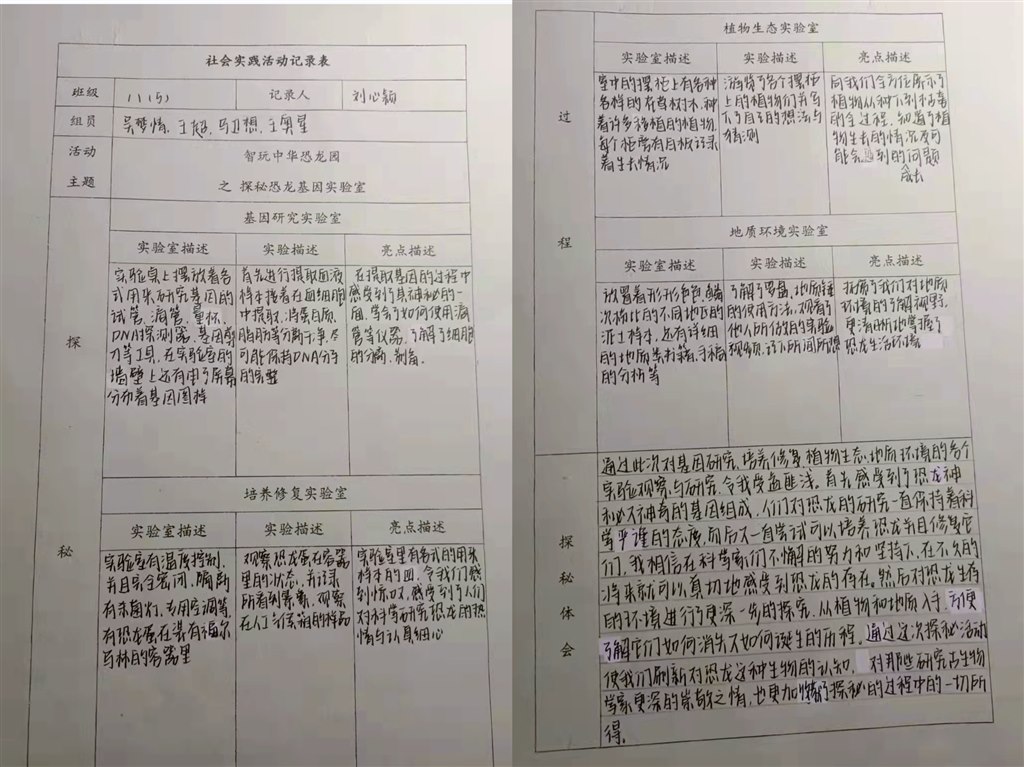 社会实践活动记录表
班级 11(5) 记录人 刘心颖
组员 吴梦情、王超、马卫想、王奥星
活动主题 智玩中华恐龙园
之 探秘恐龙基因实验室
探秘
基因研究实验室
实验室描述 实验描述 亮点描述
实验桌上摆放着各
式用来研究基因的
试管、滴管、量杯、
DNA探测器、基因剪
刀等工具，在实验室的
墙壁上还有电子屏幕
分布着基因图样
首先进行提取血液
样本接着在血细胞
中提取，将蛋白质、
脂肪等分离干净，尽
可能保持DNA分子
的完整
在提取基因的过程中
感受到了其神秘的一
面，学会了如何使用滴
管等仪器，了解了细胞
的分离、制备。
培养修复实验室
实验室描述 实验描述 亮点描述
实验室有温度控制，
并且完全密闭，厕所
有杀菌灯，专用空调等，
有恐龙蛋在装有福尔
马林的容器里
观察恐龙蛋在容器
里的状态，并记录
所看到景象，观察
在人们系箱的样品
实验室里有各式的用来
样本的皿，令我们感
到惊叹，感受到了人们
对科学研究恐龙的热
情与认真细心
过程
植物生态实验室
实验室描述 实验描述 亮点描述
室中的摆柜上有各种
各样的花草树木，种
着许多移植的植物，
每个柜旁有白板记录
着生长情况
游览了各个摆柜
上的植物们并写
下了自己的想法与
猜测
向我们全方位展示了
植物从种下到枯萎
的全过程，知道了植
物生长的情况及可
能会遇到的问题
成长
地质环境实验室
实验室描述 实验描述 亮点描述
放置着形形色色，鳞
次栉比的不同地区的
泥土样本，还有详细
的地质类书籍，手稿
的分析等
了解了罗盘、地质锤
的使用方法，观看了
他人所做的实验
视频，记下所闻所想
拓展了我们对地质
环境的了解视野，
更清晰地掌握了
恐龙生活环境
探秘体会
通过此次对基因研究、培养修复、植物生态、地质环境的各个
实验观察与研究，令我受益匪浅。首先感受到了恐龙神
秘又神奇的基因组成，人们对恐龙的研究一直保持着科
学严谨的态度，而后又一直尝试可以培养恐龙并且修复它
们，我相信在科学家们不懈的努力和坚持下，在不久的
将来就可以真切地感受到恐龙的存在。然后对恐龙生存
的环境进行了更深一步的探究，从植物和地质入手，方便
了解它们如何消失又如何诞生的历程，通过这次探秘活动
使我们刷新对恐龙这种生物的认知，对那些研究古生物
学家更深的崇敬之情，也更加的探秘的过程中的一切所
得。